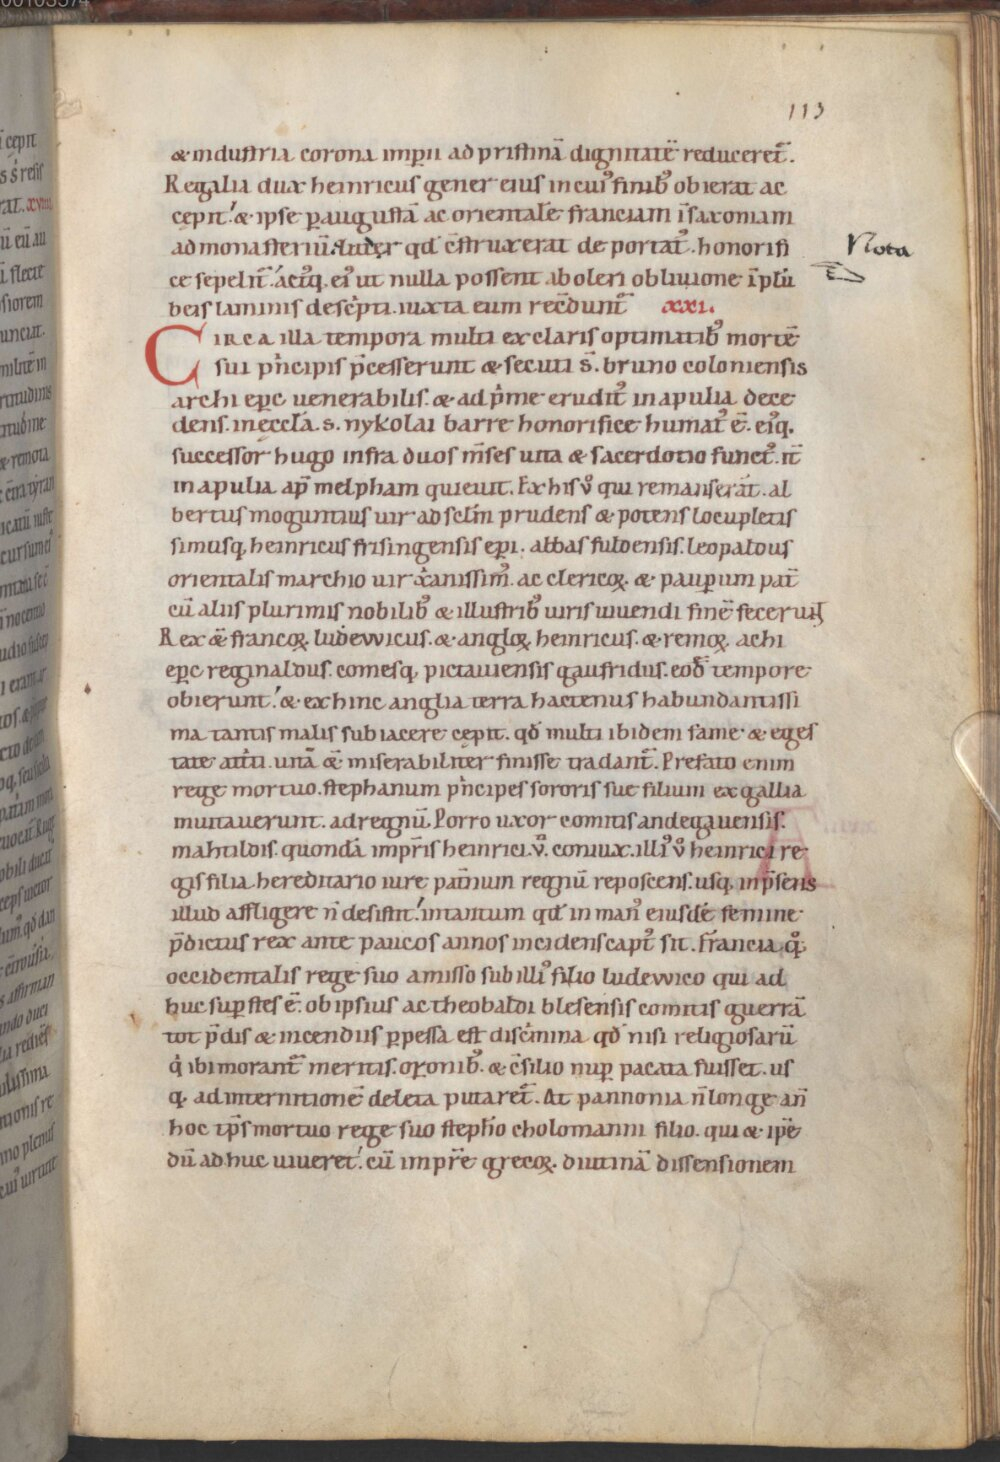 113
& industria corona imp̄ii ad pristinā dignitatē reduceret̄.
Regalia dux heinricus gener eius in cui᷒ finib᷒ obierat ac
cepit.́ & ipse p̄ augustā ac orientalē franciam ī saxoniam
ad monasteriū luder qd̄ c̄struxerat de portat᷒. honorifi
Nota
ce sepelit̄. áctꝗ. ei᷒ ut nulla possent aboleri obliuione ī plū
beis laminis desc̄pti. iuxta eum rec̄dunt̄ xxi.
Circa illa tempora multi ex claris optimatib᷒ mortē
sui pͥncipis p̄cesserunt & secuti s̄. bruno coloniensis
archi ep̄c uenerabilis. & ad pͥme erudit᷒ in apulia dece
dens. in ęccl̄a. s. nykolai barre honorifice humat᷒ ē. eiꝗ.
successor hugo infra duos m̄ses uita & sacerdotio funct᷒. it̄
in apulia ap̄ melpham quieuit. Ex his v̊ qui remanserāt. al
bertus moguntius uir ad sclm̄ prudens & potens locupletis
simusꝗ heinricus frisingensis ep̄i. abbas fuldensis. leopaldus
orientalis marchio uir xͥanissim᷒. ac clericoꝝ. & paup̄um pat̄
cū aliis plurimis nobilib᷒ & illustrib᷒ uiris uiuendi finē fecerunt
Rex &̄ francoꝝ ludewicus. & angloꝝ heinricus. & remoꝝ. achi
ep̄c reginaldus. comesꝗ pictauiensis gaufridus. eod̄ tempore
obierunt.́ & ex hinc anglia terra hactenus habundantissi
ma tantis malis subiacere cepit. qd̄ multi ibidem fame & eges
tate attͥti. uitā &̄ miserabiliter finisse tradant̄. Prefato enim
rege mortuo. stephanum pͥncipes sororis sue filium ex gallia
inuitauerunt. ad regnū. Porro uxor comitis andegauensis.
mahtildis. quondā imp̄ris heinrici. v̊. coniux. illi᷒ v̊ heinrici re
gis filia hereditario iure pat̄num regnū reposcens. usꝗ. in p̄sens
illud affligere n̄ desistit.́ in tantum qd̄ in man᷒ eiusdē femine
p̄dictus rex ante paucos annos incidens capt᷒ sit. Francia ꝗ᷒.
occidentalis rege suo amisso sub illi᷒ filio ludewico qui ad
huc sup̄stes ē. ob ipsius ac theobaldi blesensis comitis guerrā
tot p̄dis & incendiis p̄pessa est discͥmina qd̄ nisi religiosarū
qͥ ibi morant̄ meritis. or̄onib᷒. & c̄silio nup̄ pacata fuisset. us
ꝗ. ad internitionē deleta putaret̄. At pannonia n̄ longe an̄
hoc tp̄s mortuo rege suo steph̄o cholomanni filio. qui & ip̄e
dū ad huc uiueret.́ cū imp̄re grecoꝝ. diutinā dissensionem